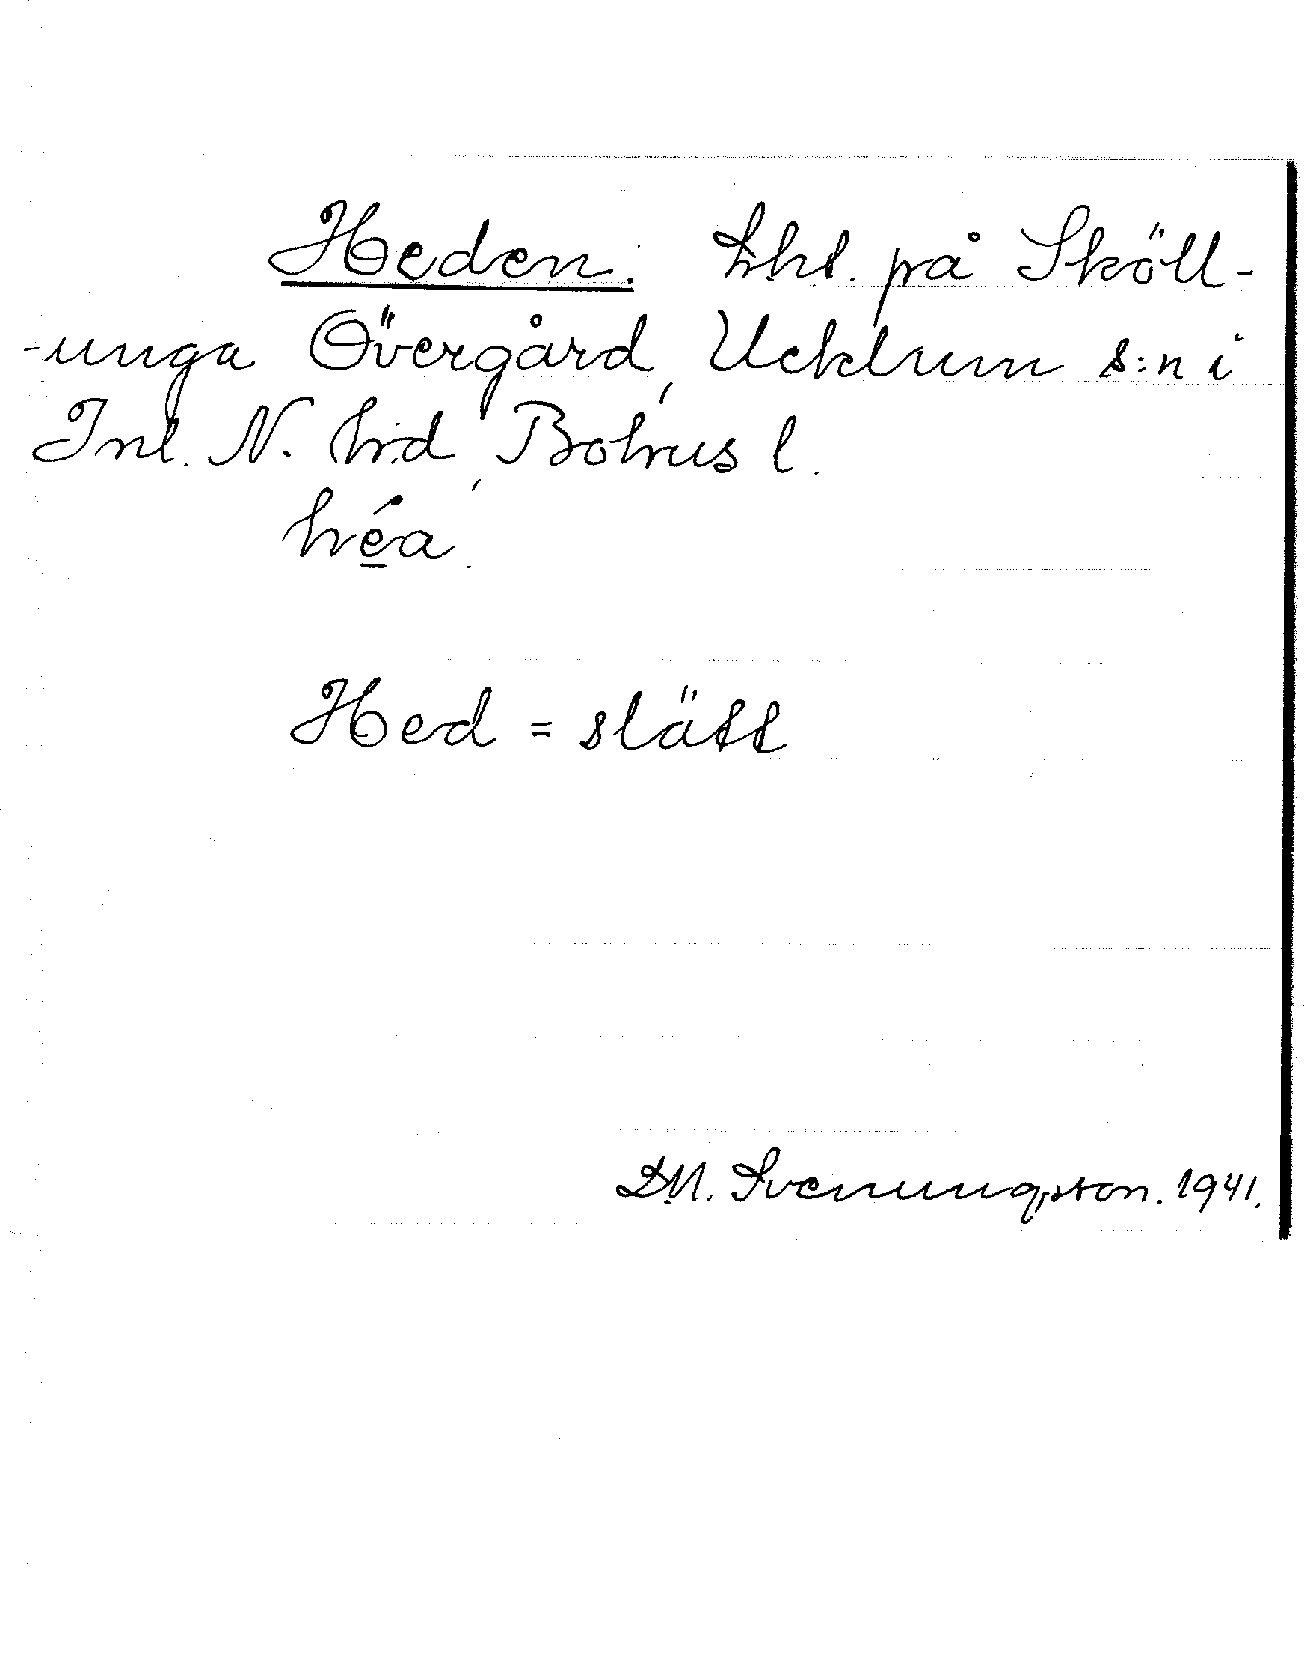 Heden. Lht. på Sköll-
-unga Övergård, Ucklum s:n i
Inl. N. hrd, Bohus l.
héa.
Hed = slätt
D.M. Svenungsson. 1941.